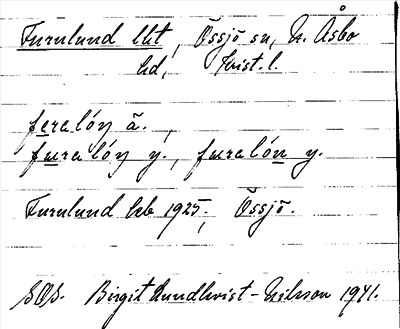 Furulund lht, Össjö sn, N. Åsbo
hd, Krist. l.
feralóŋ ä.,
furalóŋ y., furalón y.
Furulund hrb 1925; Össjö.
SOS. Birgit Lundkvist-Nilsson 1941.